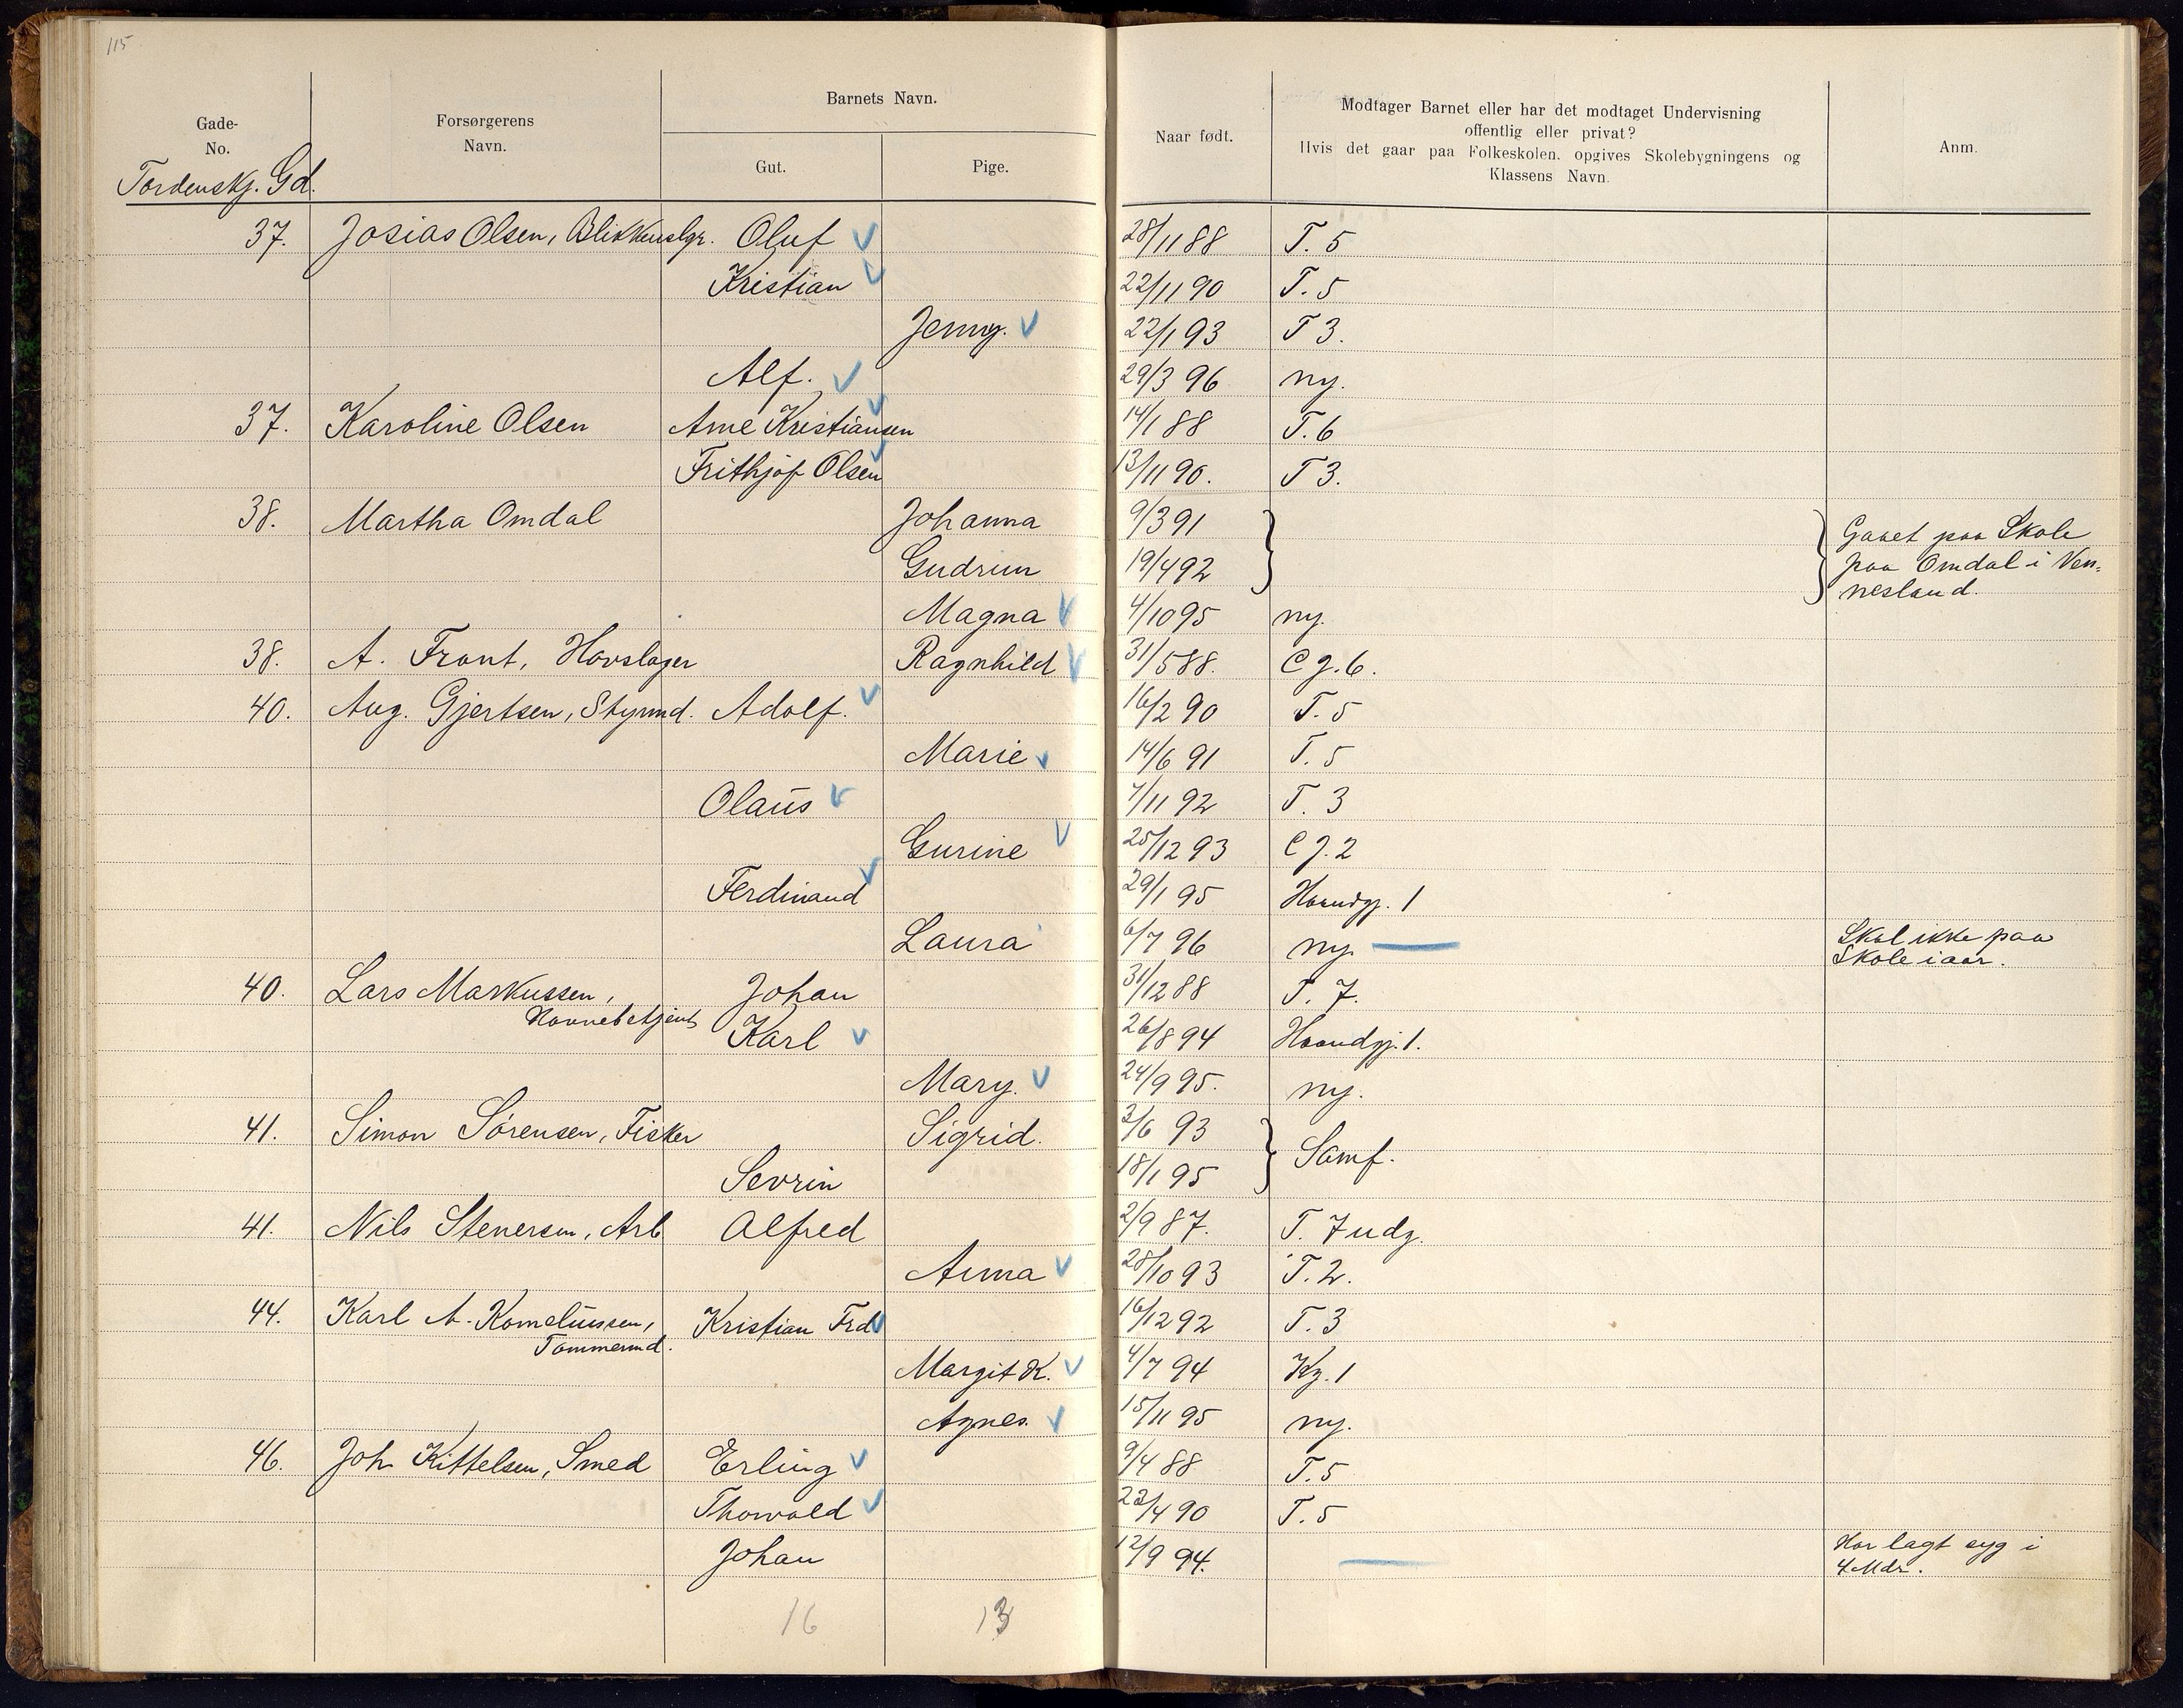 115
Gade-
No.
Forsørgerens
Navn.
Barnets Navn.
Gut.
Pige.
Naar født.
Modtager Barnet eller har det modtaget Undervisning
offentlig eller privat?
Hvis det gaar paa Folkeskolen, opgives Skolebygningens og
Klassens Navn.
Anm.
Tordenskj. Gd.
37. Josias Olsen, Blikkenslgr. Oluf 28/11 88 T. 5
Kristian 22/11 90 T. 5
Jenny. 22/1 93 T 3.
Alf. 29/3 96 ny.
37. Karoline Olsen Arne Kristiansen 14/1 88 T. 6
Frithjof Olsen 13/11 90. T 3.
38. Martha Omdal Johanna 9/3 91 Gaaet paa Skole
Gudrun 19/4 92 paa Omdal i Ven-
nesland.
Magna 4/10 95 ny.
38. A. Front, Hovslager Ragnhild 31/5 88. C g. 6.
40. Aug. Gjertsen, Styrmd. Adolf. 16/2 90 T. 5
Marie 14/6 91 T. 5
Olaus 7/11 92 T. 3
Gurine 25/12 93 C g. 2
Ferdinand 29/1 95 Haandgj. 1
Laura 6/7 96 ny. Skal ikke paa
Skole i aar.
40. Lars Markussen, Johan 31/12 88 T. 7.
Havnebetjent Karl 26/8 94 Haandgj. 1.
Mary. 24/9 95. ny.
41. Simon Sørensen, Fisker Sigrid. 3/6 93 Samf.
Sevrin 18/1 95
41. Nils Stenersen, Arb Alfred 2/9 87. T. 7 udg.
Anna 28/10 93 T. 2.
44. Karl A. Korneliussen, Kristian Frd 16/12 92 T. 3
Tømmermd.
Margit K. 4/7 94 Kg. 1
Agnes. 15/11 95 ny.
46. Joh Kittelsen, Smed Erling 9/4 88 T. 5
Thorvald 23/4 90 T. 5
Johan 12/9 94. Har lagt syg i
4 Mdr.
16 13